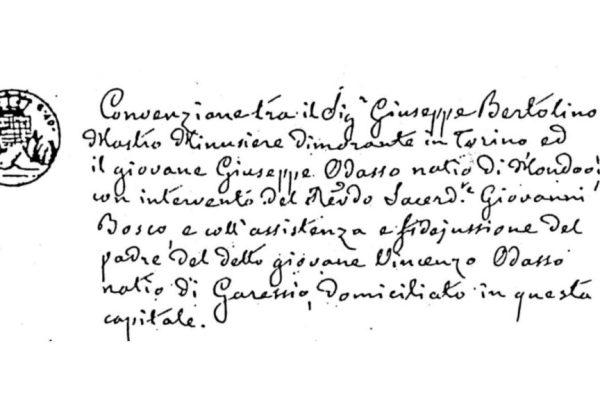 Convenzione tra il Sig.r Giuseppe Bertolino
Mastro Minusiere dimorante in Torino ed
il giovane Giuseppe Odasso natio di Mondovì
con intervento del Revdo Sacerd.te Giovanni
Bosco e coll'assistenza e fidejussione del
padre del detto giovane Vincenzo Odasso
natio di Garessio, domiciliato in questa
capitale.